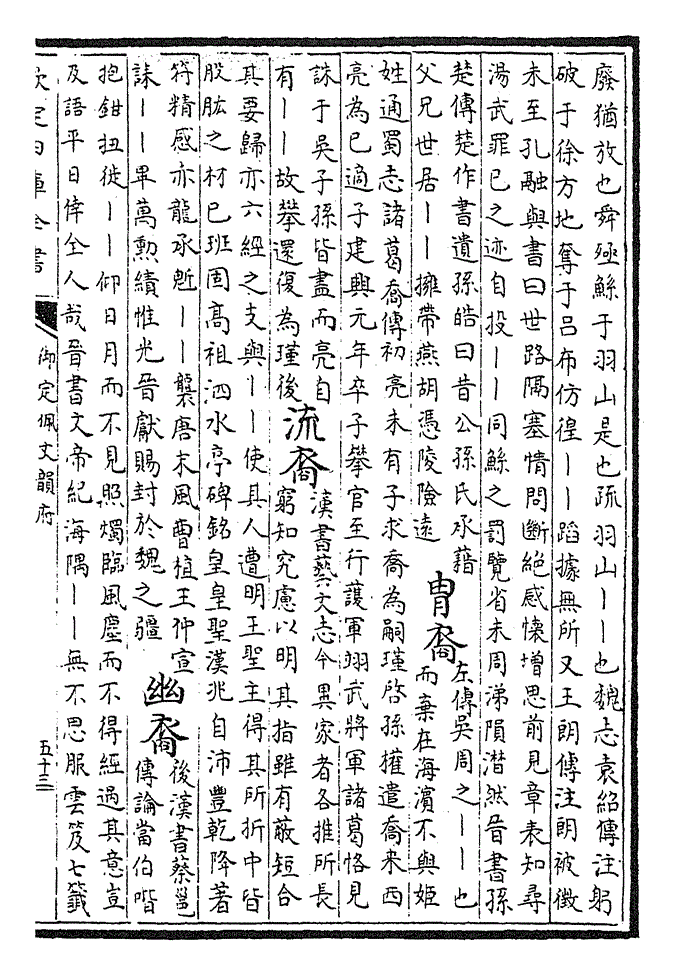 廢猶放也舜殛鯀于羽山是也疏羽山丨丨也魏志袁紹傳注躬
破于徐方地奪于呂布仿徨丨丨蹈據無所又王朗傳注朗被徵
未至孔融與書曰世路隔塞情問斷絕感懷增思前見章表知尋
湯武罪已之迹自投丨丨同鯀之罰覽省未周涕隕潸然晉書孫
楚傳楚作書遺孫皓曰昔公孫氏承藉
父兄世居丨丨擁帶燕胡憑陵險遠
冑裔
左傳吳周之丨丨也
而棄在海濱不與姬
姓通蜀志諸葛喬傳初亮未有子求喬為嗣瑾啓孫權遣喬来西
亮為已適子建興元年卒子攀官至行護軍翊武將軍諸葛恪見
誅于吳子孫皆盡而亮自
有丨丨故攀還復為瑾後
流裔
漢書藝文志今異家者各推所長
窮知究慮以明其指雖有蔽短合
其要歸亦六經之支與丨丨使其人遭明王聖主得其所折中皆
股肱之材已班固髙祖泗水亭碑銘皇皇聖漢兆自沛豐乾降著
符精感亦龍承鬿丨丨襲唐末風曹植王仲宣
誄丨丨畢萬勲績惟光晉獻賜封於魏之疆
幽裔
後漢書蔡邕
傳論當伯喈
抱鉗扭徙丨丨仰日月而不見照燭臨風塵而不得經過其意豈
及語平日倖全人哉晉書文帝紀海隅丨丨無不思服雲笈七籤
欽定四庫全書
御定佩文韻府
五十三